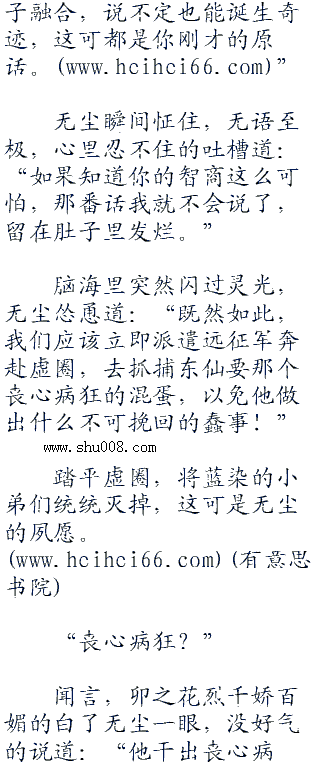 子融合，说不定也能诞生奇
迹，这可都是你刚才的原
话。(www.hcihci66.com)”
无尘瞬间怔住，无语至
极，心里忍不住的吐槽道：
“如果知道你的智商这么可
怕，那番话我就不会说了，
留在肚子里发烂。”
脑海里突然闪过灵光，
无尘怂恿道：“既然如此，
我们应该立即派遣远征军奔
赴虚圈，去抓捕东仙要那个
丧心病狂的混蛋，以免他做
出什么不可挽回的蠢事！”
www.shu008.com
踏平虚圈，将蓝染的小
弟们统统灭掉，这可是无尘
的夙愿。
(www.hcihci66.com)(有意思
书院)
“丧心病狂？”
闻言，卯之花烈千娇百
媚的白了无尘一眼，没好气
的说道：“他干出丧心病